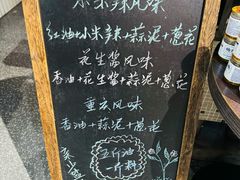 小米辣风味
红油+小米辣+蒜泥+葱花
花生酱风味
香油+花生酱+蒜泥+葱花
重庆风味
香油+蒜泥+葱花
五斤油
一斤料